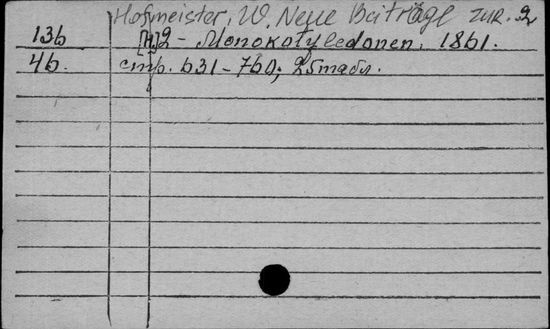 Hofmeister, W. Neue Beiträge zur. 2
136 [H.]2 - Monokotyledonen. 1861.
46. стр. 631-760; 25 табл.